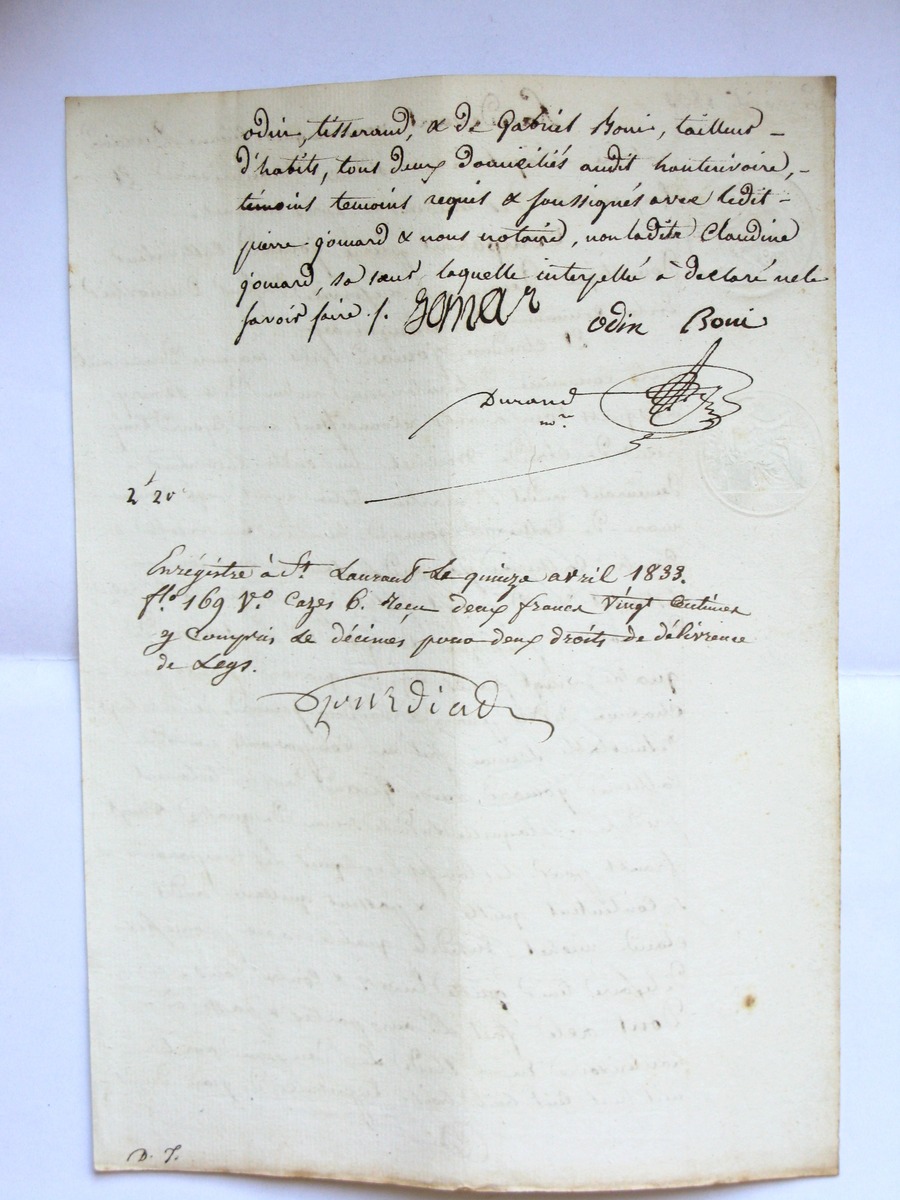 odin, tisserand, & de Gabriel Boni, tailleur -
d'habits, tous deux domiciliés audit hauterivoire, -
témoins temoins requis & soussignés avec ledit -
pierre gomard & nous notaire, non ladite Claudine
gomard, sa sœur laquelle interpellée à declaré ne le
savoir faire /.
odin Boni
Durand
nore
2f 20
Enrégistré à St. Laurant Le quinze avril 1833.
flo 169 Vo Cazes 6. Reçu deux francs Vingt Centimes
y Compris Le décimes pour deux droits de délivrence
de Legs.
D. J.